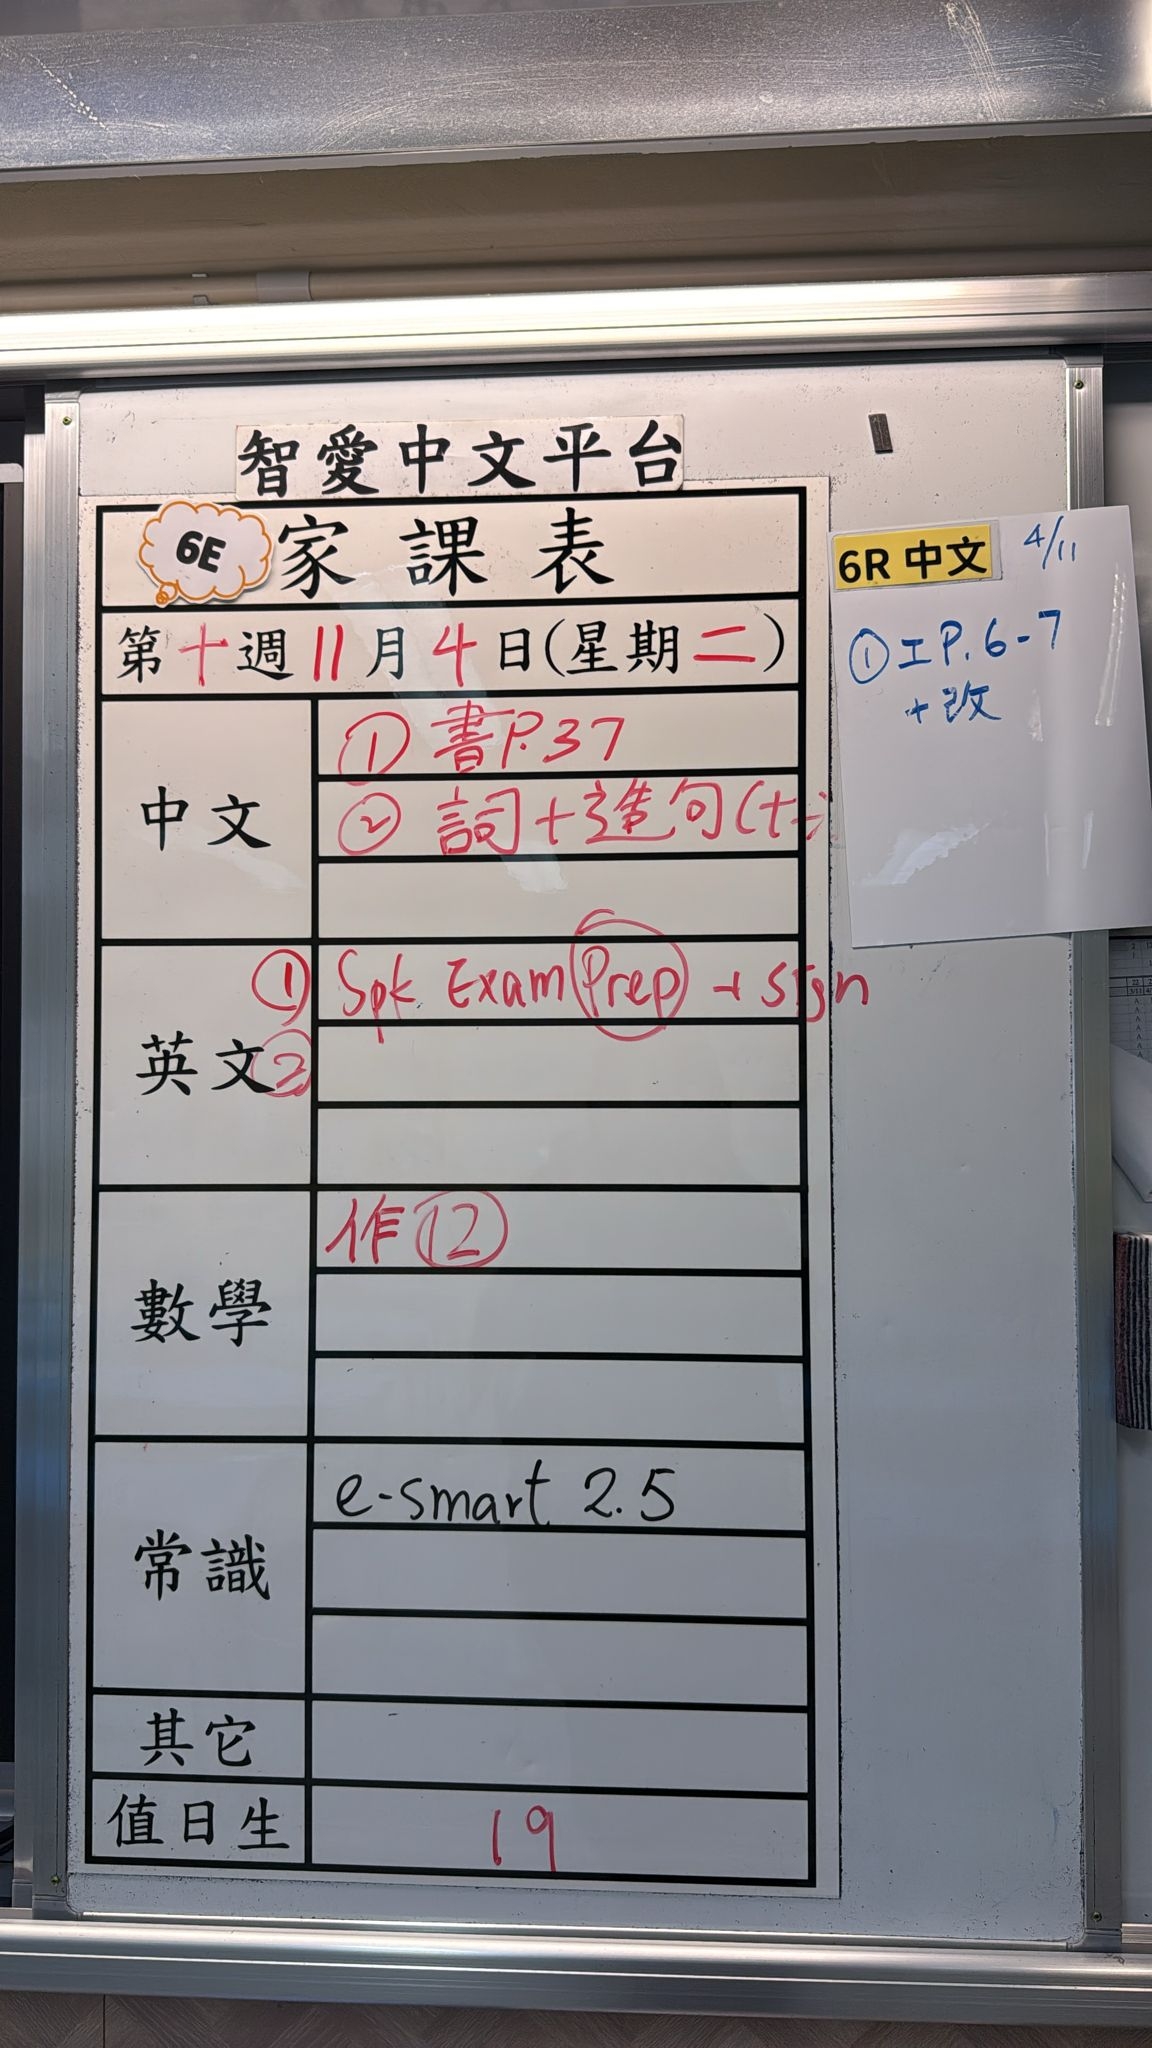 智愛中文平台
6E 家課表
第十週11月4日(星期二)
中文
① 書P.37
② 詞+造句(十
英文
① Spk Exam Prep + sign
②
數學
作⑫
常識
e-smart 2.5
其它
值日生
19
6R 中文 4/11
① 工P.6-7
+改